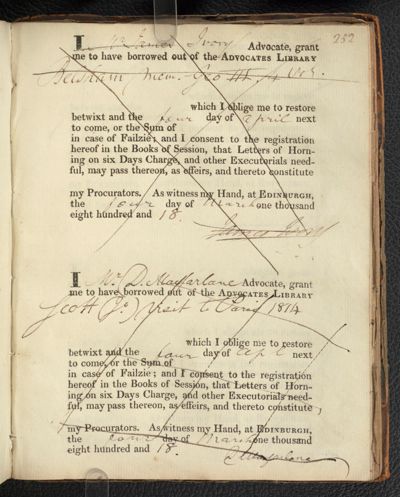 252
I Mr James Ivory Advocate, grant
me to have borrowed out of the ADVOCATES LIBRARY
Belsham, Mem. Geo III.
which I oblige me to restore
betwixt and the four day of April next
to come, or the Sum of
in case of Failzie; and I consent to the registration
hereof in the Books of Session, that Letters of Horn-
ing on six Days Charge, and other Executorials need-
ful, may pass thereon, as effeirs, and thereto constitute
my Procurators. As witness my Hand, at EDINBURGH,
the four day of March one thousand
eight hundred and 18.
James Ivory
I Mr. D. Macfarlane Advocate, grant
me to have borrowed out of the ADVOCATES LIBRARY
Scott (Jn.) Visit to Paris 1814
which I oblige me to restore
betwixt and the four day of Apl next
to come, or the Sum of
in case of Failzie; and I consent to the registration
hereof in the Books of Session, that Letters of Horn-
ing on six Days Charge, and other Executorials need-
ful, may pass thereon, as effeirs, and thereto constitute
my Procurators. As witness my Hand, at EDINBURGH,
the four day of March one thousand
eight hundred and 18.
D Macfarlane